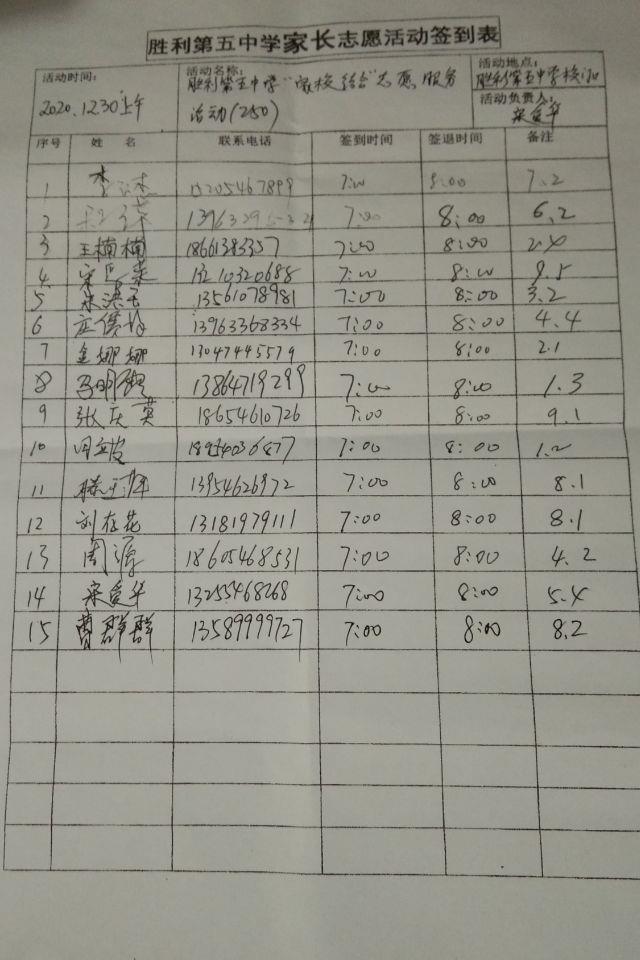 胜利第五中学家长志愿活动签到表
活动时间: 2020.12.30上午
活动名称: 胜利第五中学"家校结合"志愿服务
活动(250)
活动地点: 胜利第五中学校门口
活动负责人: 宋爱华
序号 姓名 联系电话 签到时间 签退时间 备注
1 李 15205467899 7:00 8:00 7.2
2 7:00 8:00 6.2
3 王楠楠 18661383357 7:00 8:00 2.4
4 宋 13210320688 7:00 8:00 9.5
5 宋洪玉 13561078981 7:00 8:00 3.2
6 13963368334 7:00 8:00 4.4
7 孟娜娜 13047445579 7:00 8:00 2.1
8 马明 13864719299 7:00 8:00 1.3
9 张庆英 18654610726 7:00 8:00 9.1
10 周 7:00 8:00 1.2
11 13954626972 7:00 8:00 8.1
12 刘存花 13181979111 7:00 8:00 8.1
13 周源 18605468531 7:00 8:00 4.2
14 宋爱华 13255468268 7:00 8:00 5.4
15 曹群群 13589999727 7:00 8:00 8.2